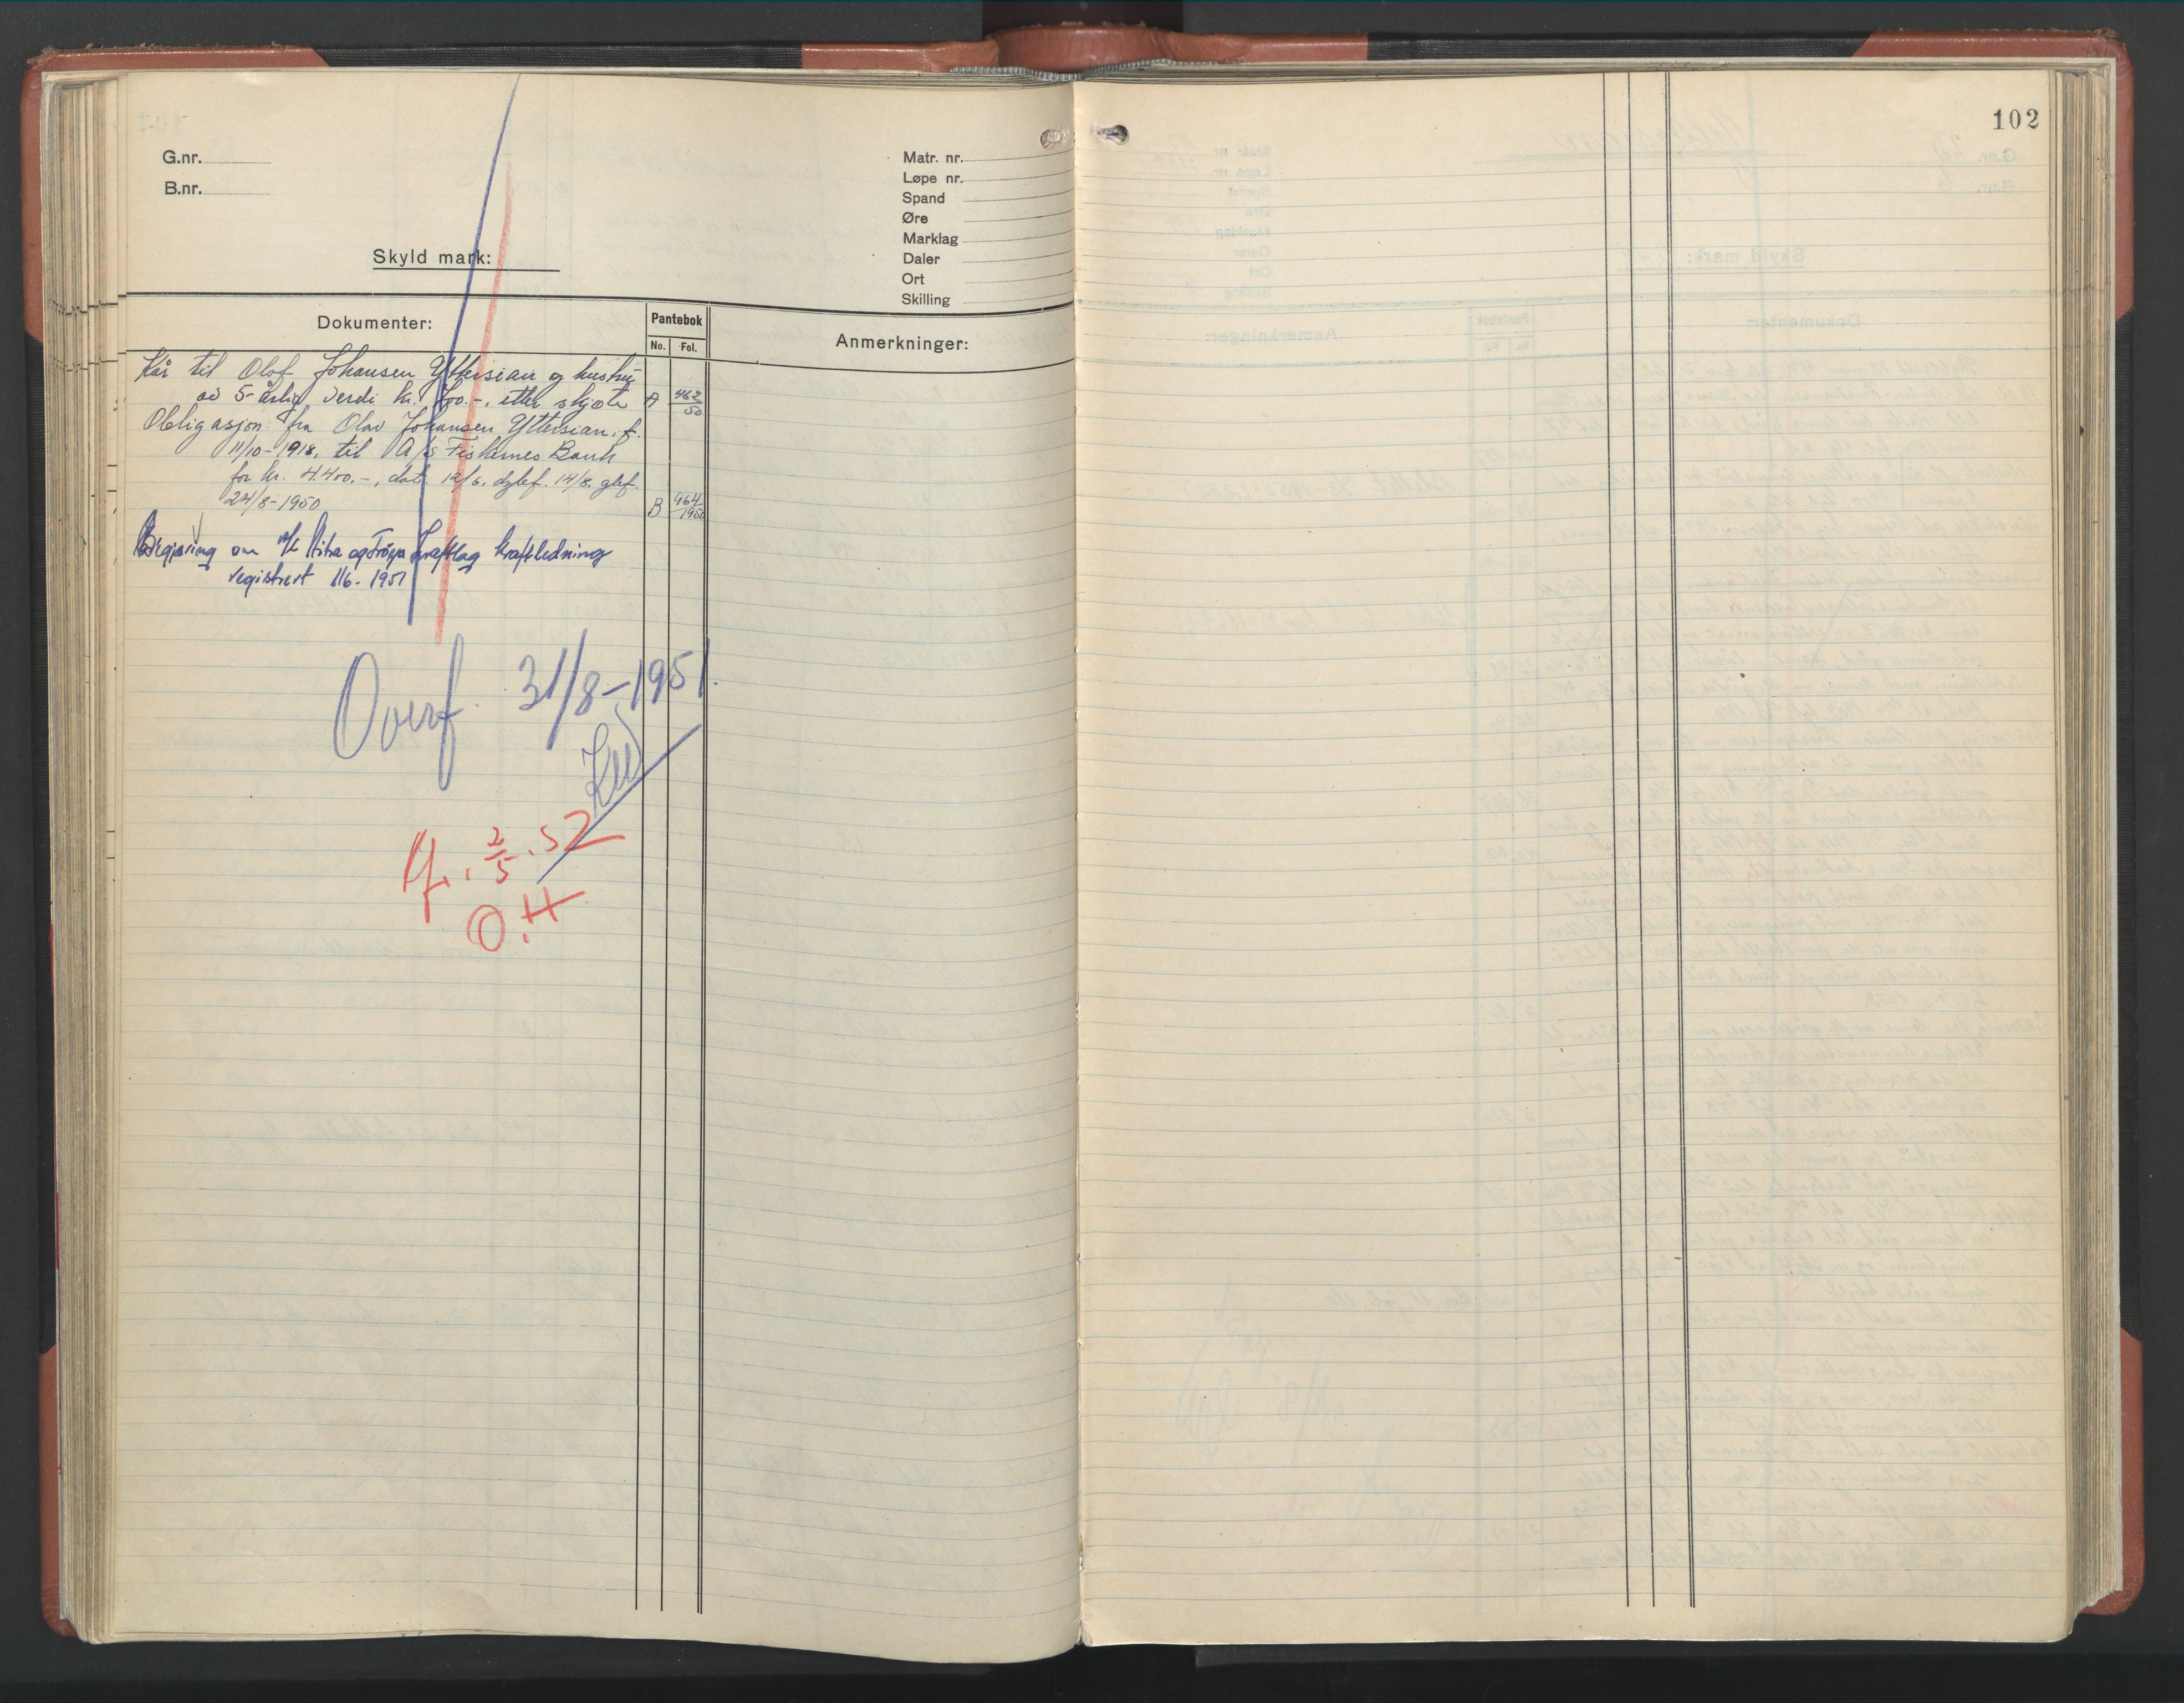 G.nr.
B.nr.
Skyld mark:
Matr. nr.
Løpe nr.
Spand
Øre
Marklag
Daler
Ort
Skilling
102
Dokumenter:
Pantebok
No. Fol.
Anmerkninger:
Kår til Olof Johansen Yttersian og hustru
av 5-årlig verdi kr. 400.-, etter skjøte A 462/50
Obligasjon fra Olav Johansen Yttersian, f.
11/10-1918, til A/S Fiskernes Bank
for kr. 4.400.-, dat. 12/6. dglef. 14/8. glef.
24/8-1950 B 964/1950
Begjæring om Hitra og Frøya Kraftlag kraftledning
registrert 1/6-1951
Overf. 31/8-1951.
2/5.52
O.H